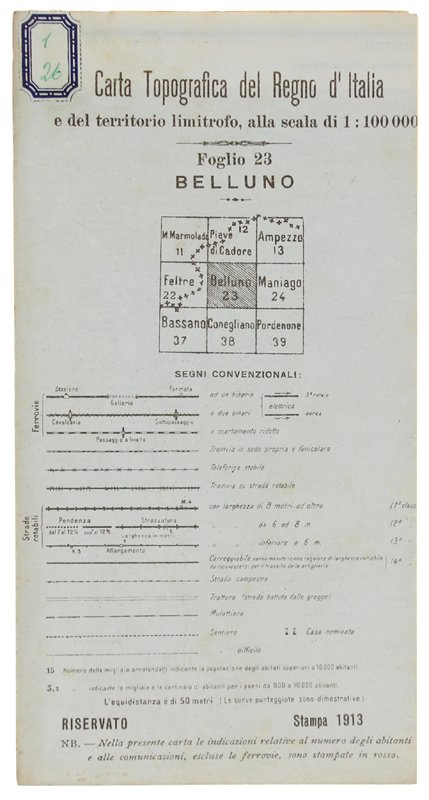 1
26
Carta Topografica del Regno d'Italia
e del territorio limitrofo, alla scala di 1:100000
Foglio 23
BELLUNO
M. Marmolada 11
Pieve di Cadore 12
Ampezzo 13
Feltre 22
Belluno 23
Maniago 24
Bassano 37
Conegliano 38
Pordenone 39
SEGNI CONVENZIONALI:
Ferrovie
Stazione Fermata ad un binario 3ª rotaia
Galleria elettrica
Cavalcavia Sottopassaggio a due binari aerea
Passaggio a livello a scartamento ridotto
Tramvia in sede propria e funicolare
Teleferica stabile
Tramvia su strada rotabile
Strade rotabili
M.4 con larghezza di 8 metri ed oltre (1ª class
Pendenza Strozzatura da 6 ad 8 m. (2ª)
dal 7 al 12% sup.e al 12% Larghezza in metri inferiore a 6 m. (3ª)
K 3 Allargamento
Carreggiabile, senza manutenzione regolare di larghezza variabile (4ª)
da riconoscersi per il transito delle artiglierie
Strada campestre
Trattura (strada battuta dalle gregge)
Mulattiera
Sentiero Casa nominata
difficile
15 Numero delle migliaia arrotondato indicante la popolazione degli abitati superiori a 10.000 abitanti
indicante le migliaia e le centinaia di abitanti per i paesi da 900 a 10.000 abitanti.
L'equidistanza è di 50 metri (Le curve punteggiate sono dimostrative)
RISERVATO Stampa 1913
NB. — Nella presente carta le indicazioni relative al numero degli abitanti
e alle comunicazioni, escluse le ferrovie, sono stampate in rosso.